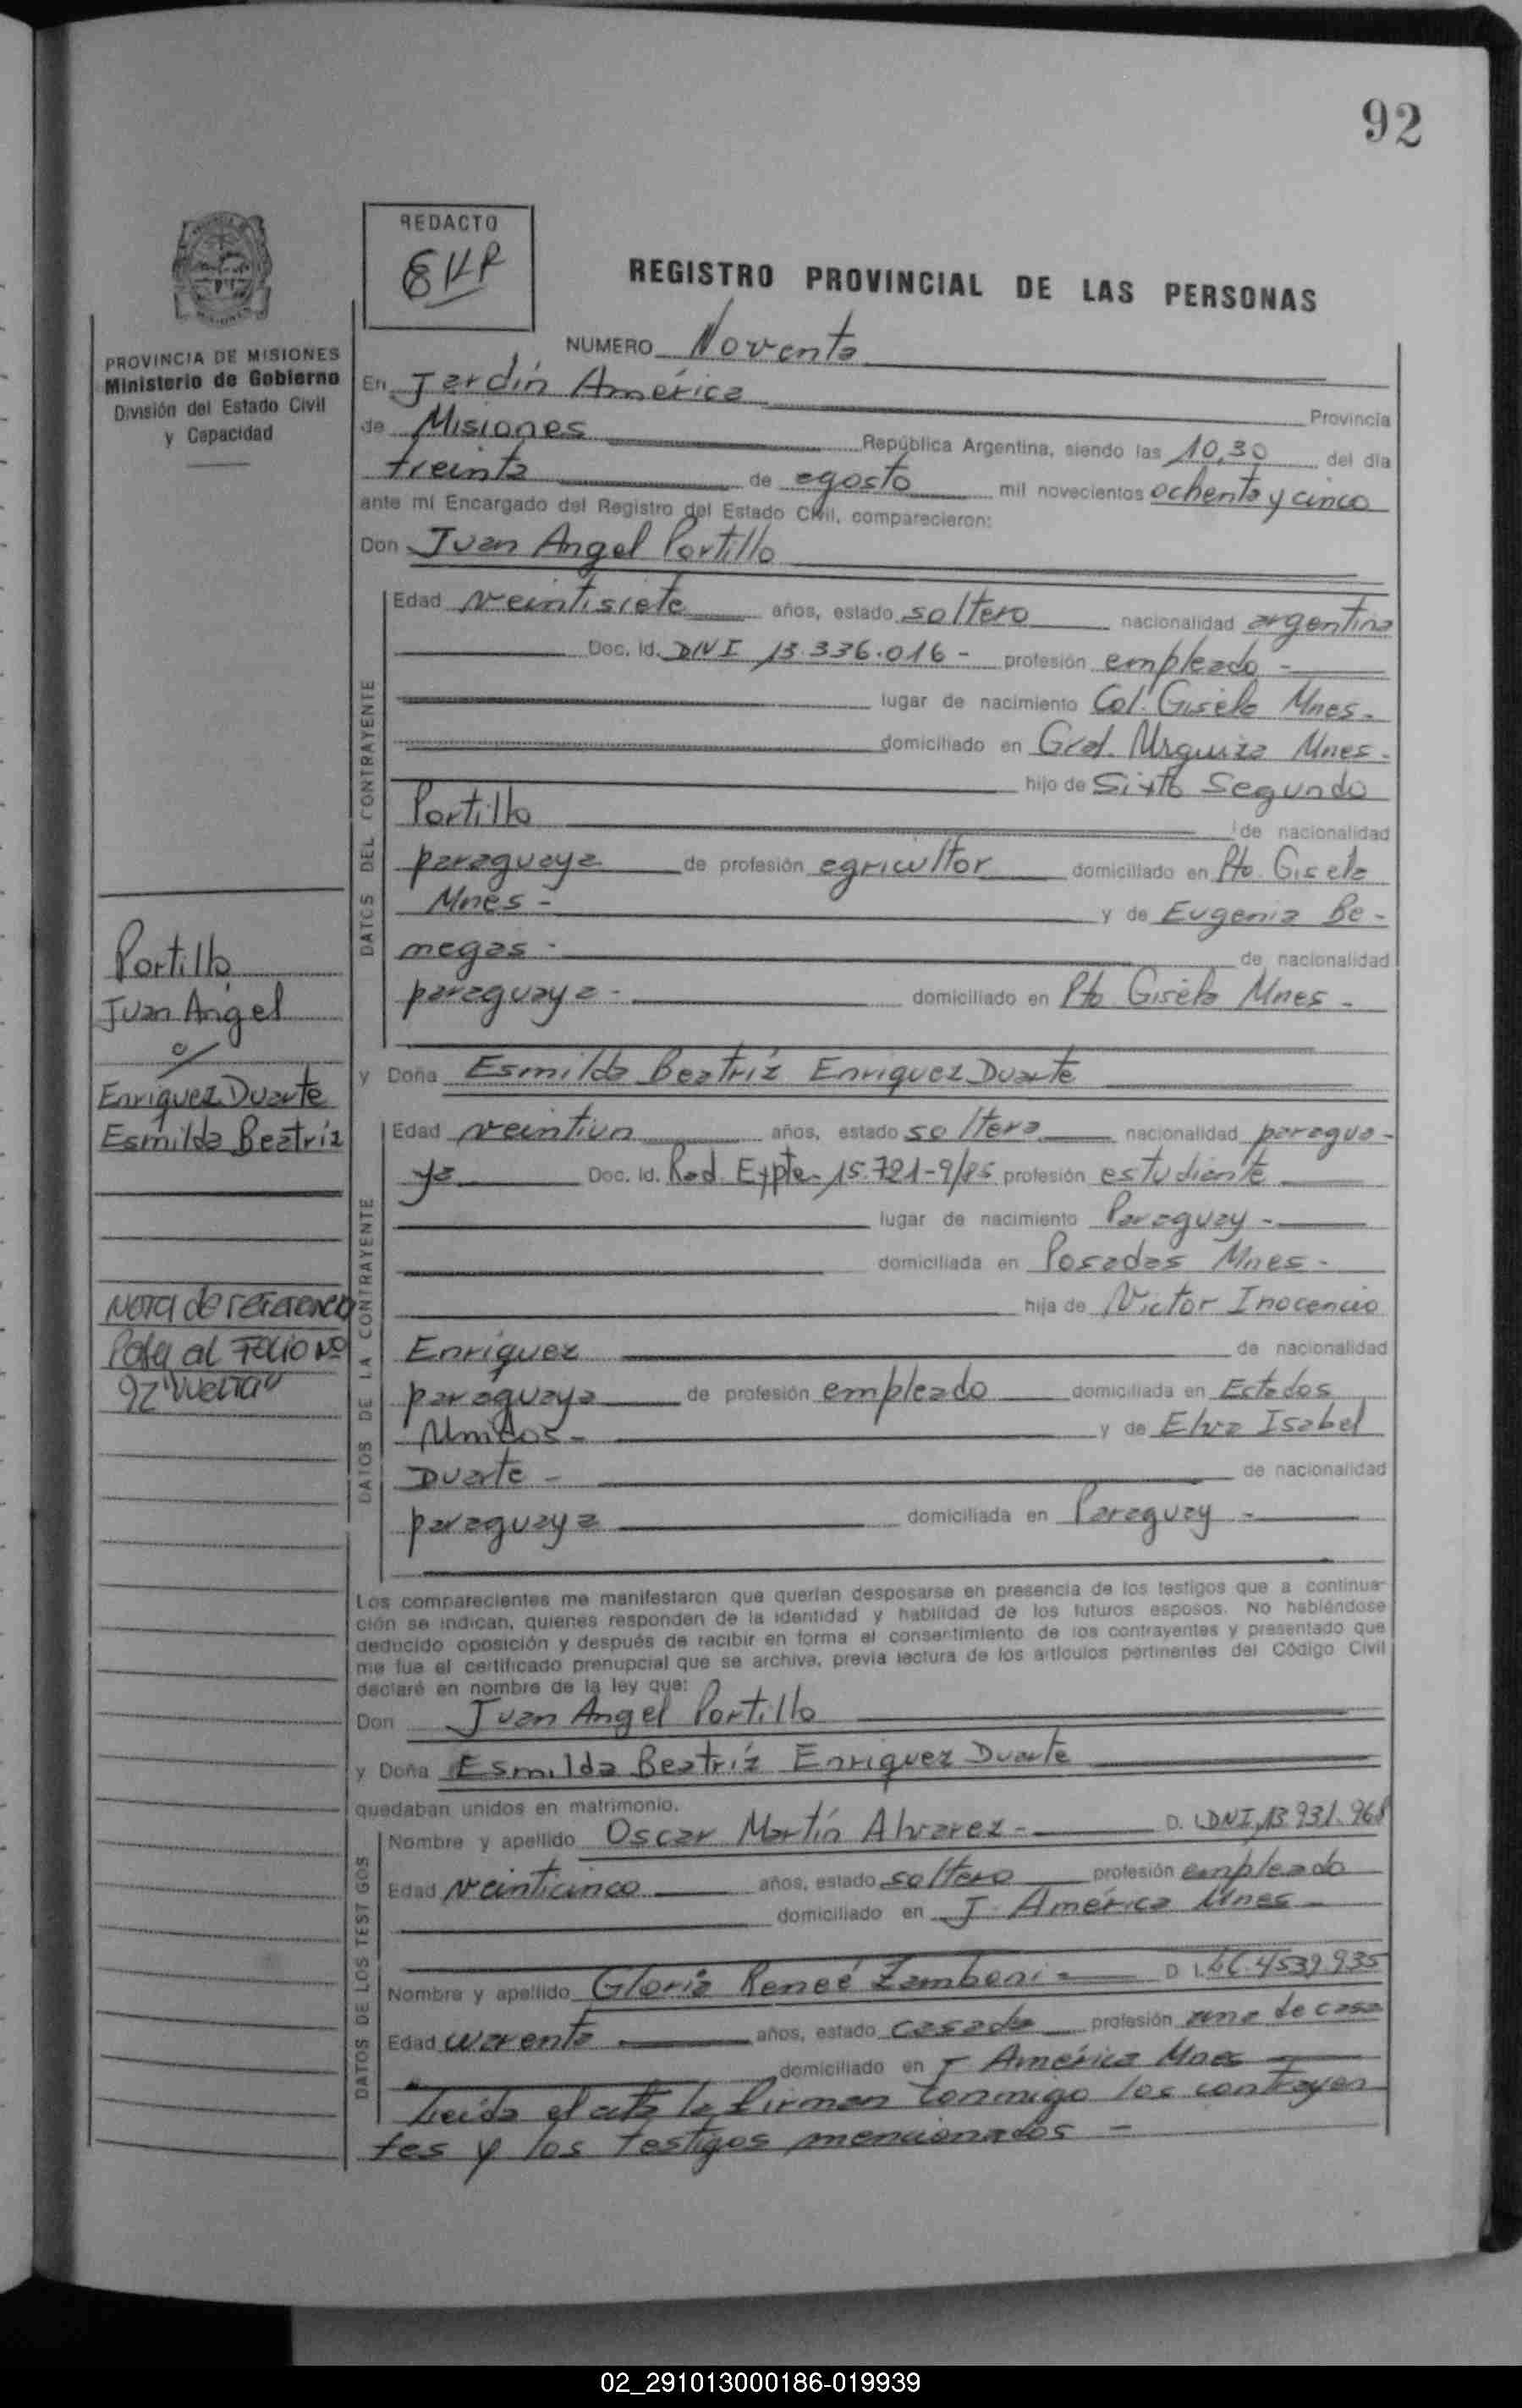 92
REDACTO
REGISTRO PROVINCIAL DE LAS PERSONAS
PROVINCIA DE MISIONES
Ministerio de Gobierno
División del Estado Civil
y Capacidad
NUMERO Noventa
En Jardín América Provincia
de Misiones República Argentina, siendo las 10,30 del día
treinta de agosto mil novecientos ochenta y cinco
ante mí Encargado del Registro del Estado Civil, comparecieron:
Don Juan Angel Portillo
DATOS DEL CONTRAYENTE
Edad veintisiete años, estado soltero nacionalidad argentina
Doc. Id. DNI 13.336.016 - profesión empleado -
lugar de nacimiento Col. Gisela Mnes -
domiciliado en Gral. Urquiza Mnes -
hijo de Sixto Segundo
Portillo de nacionalidad
paraguaya de profesión agricultor domiciliado en Pto. Gisela
Mnes - y de Eugenia Be-
negas - de nacionalidad
paraguaya - domiciliado en Pto Gisela Mnes -
Portillo
Juan Angel
c/
Enriquez Duarte
Esmilda Beatríz
y Doña Esmilda Beatríz Enriquez Duarte
DATOS DE LA CONTRAYENTE
Edad veintiun años, estado soltera nacionalidad paragua-
ya Doc. Id. Rad. Expte. 15.721-9/85 profesión estudiante
lugar de nacimiento Paraguay -
domiciliada en Posadas Mnes -
hija de Victor Inocencio
Enriquez de nacionalidad
paraguaya de profesión empleado domiciliada en Estados
Unidos - y de Elva Isabel
Duarte - de nacionalidad
paraguaya domiciliada en Paraguay -
Nota de referencia
Pasa al Folio Nº
92 "vuelta"
Los comparecientes me manifestaron que querían desposarse en presencia de los testigos que a continua-
ción se indican, quienes responden de la identidad y habilidad de los futuros esposos. No habiéndose
deducido oposición y después de recibir en forma el consentimiento de los contrayentes y presentado que
me fue el certificado prenupcial que se archiva, previa lectura de los artículos pertinentes del Código Civil
declaré en nombre de la ley que:
Don Juan Angel Portillo
y Doña Esmilda Beatríz Enriquez Duarte
quedaban unidos en matrimonio.
DATOS DE LOS TESTIGOS
Nombre y apellido Oscar Martín Alvarez - D. I. DNI 13.931.968
Edad veinticinco años, estado soltero profesión empleado
domiciliado en J. América Mnes -
Nombre y apellido Gloria Reneé Zamboni - D. I. LC. 4539.935
Edad cuarenta años, estado casada profesión ama de casa
domiciliado en J América Mnes
Leida el acta la firman conmigo los contrayen
tes y los testigos mencionados -
02_291013000186-019939